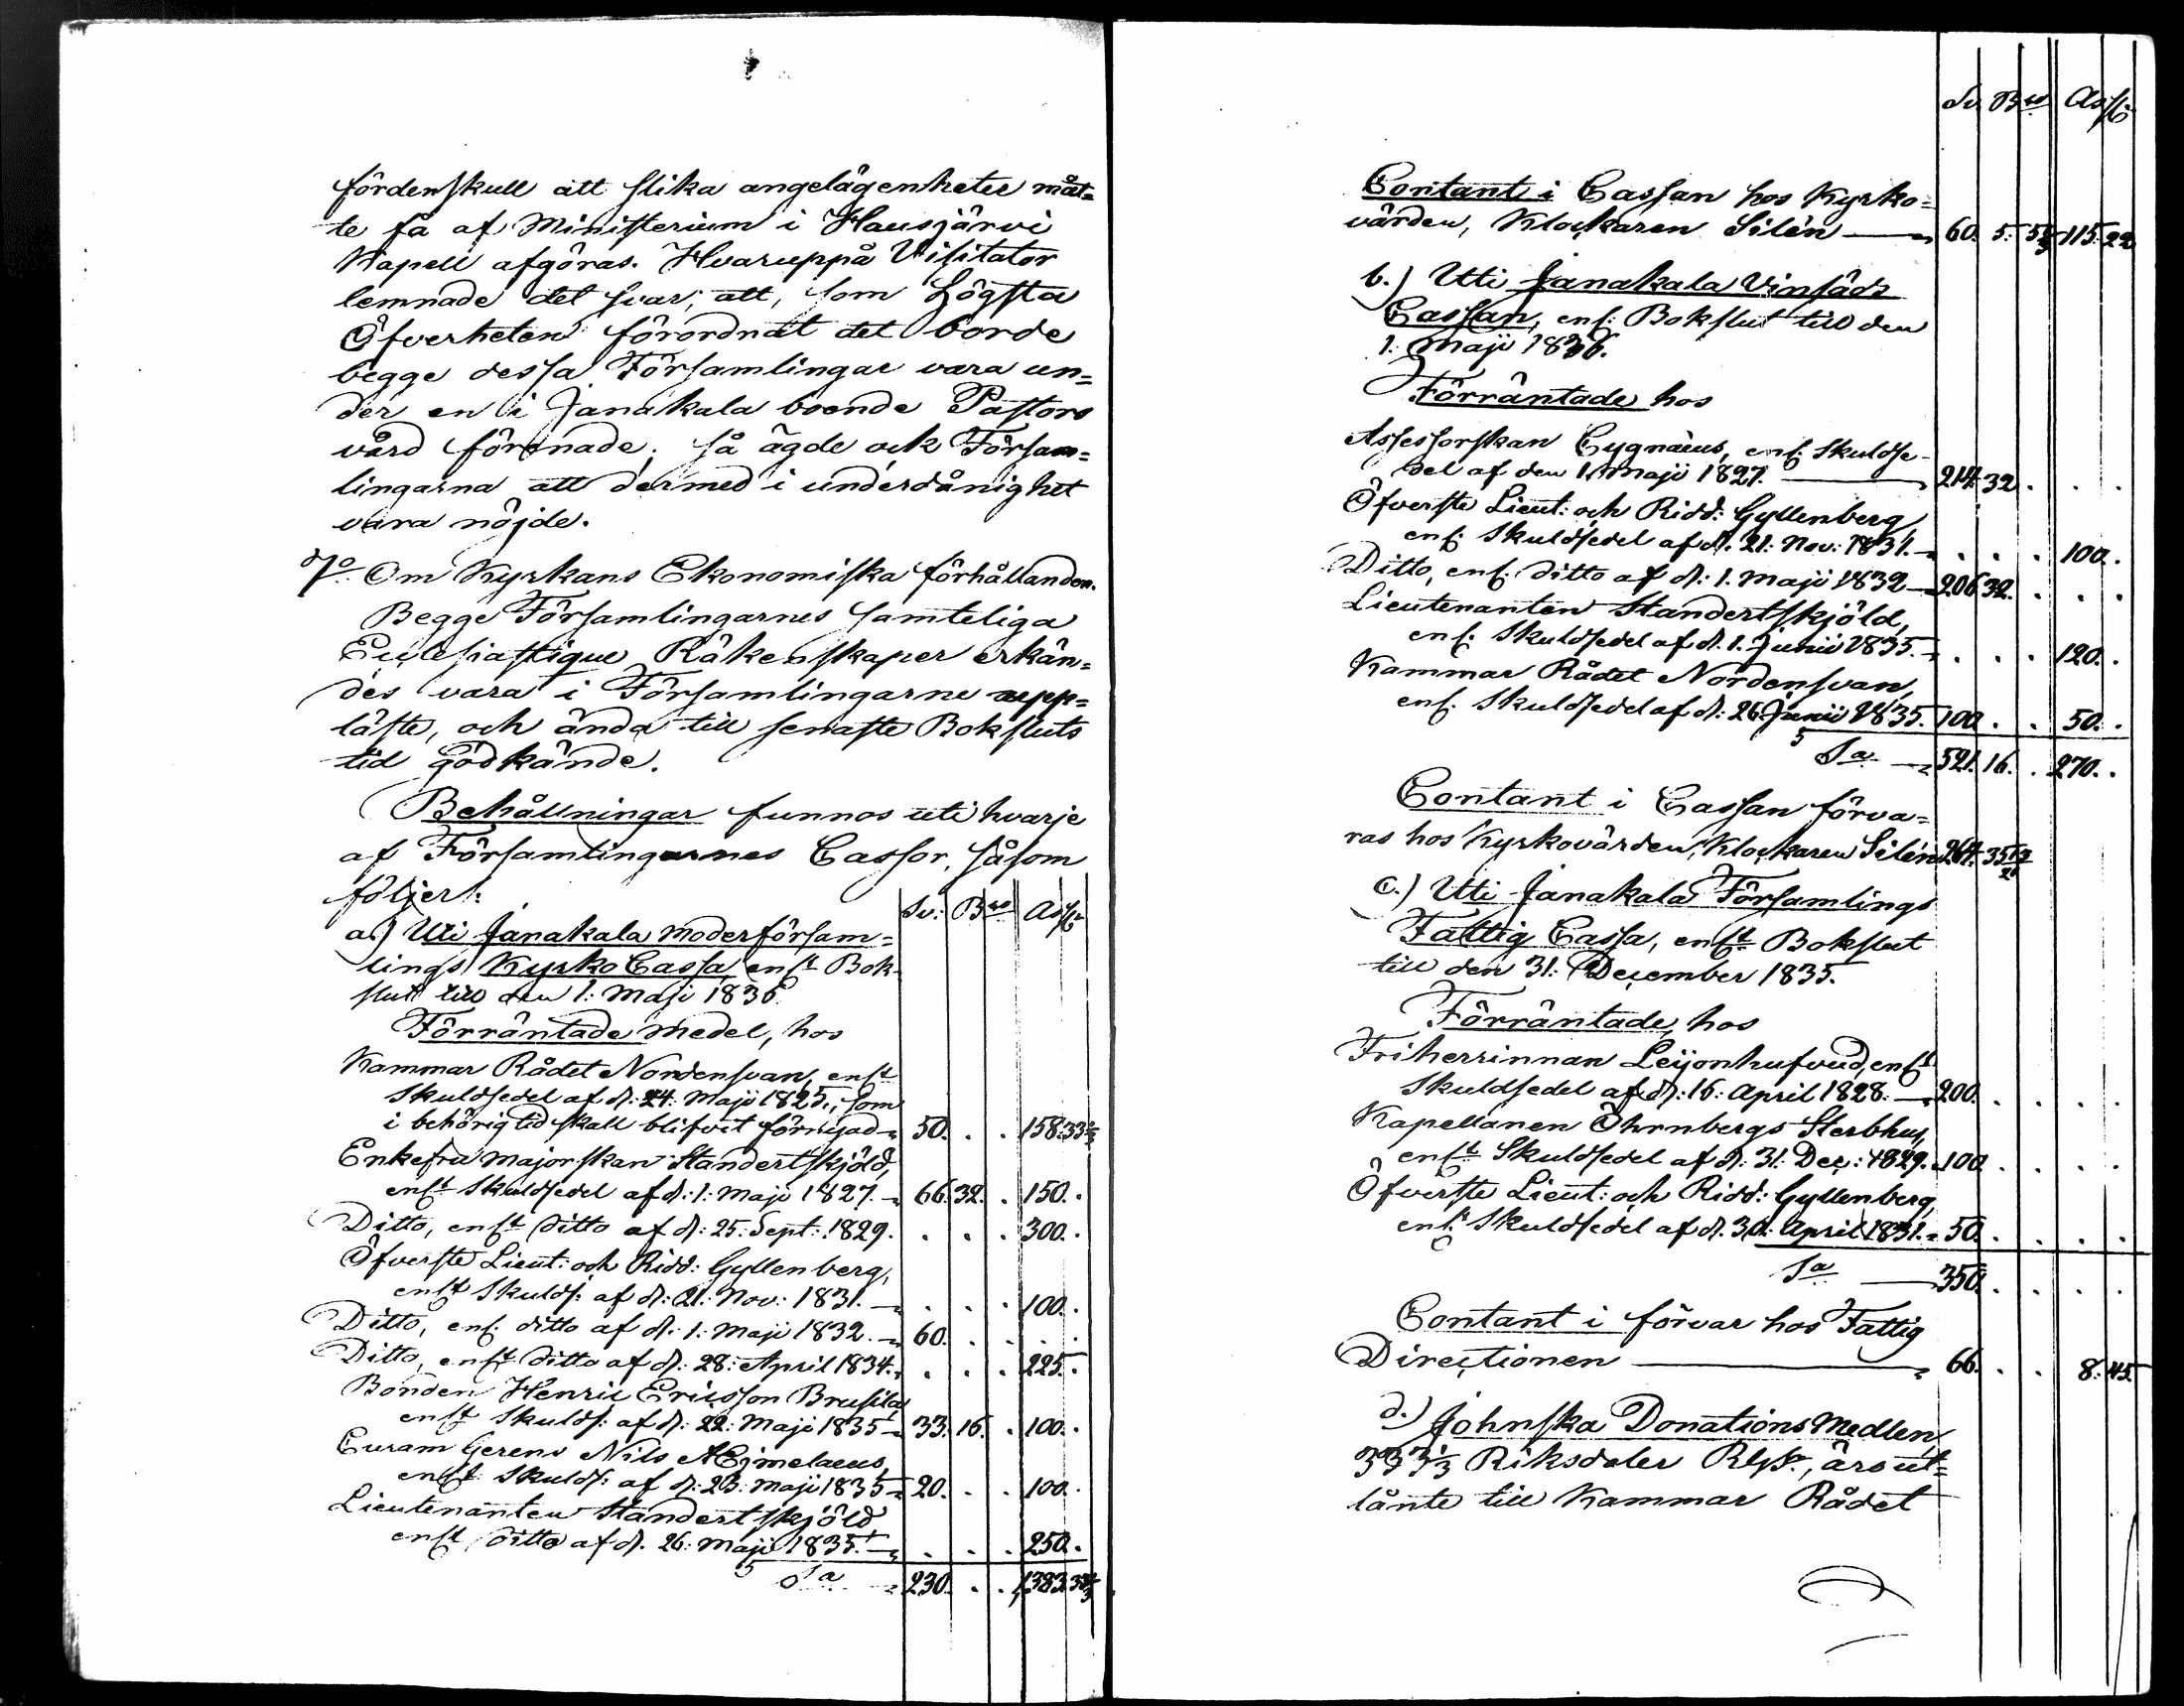 fördenskull att slika angelägenheter måt=
te få af Ministerium i Hausjärvi
Kapell afgöras. Hvaruppå Visitator
lemnade det svar; att, som Högsta
Öfverheten förordnat det borde
begge dessa Församlingar vara un=
der en i Janakala boende Pastors
vård förenade; så ägde ock Försam=
lingarna att dermed i underdånighet
vara nöjde.
7o. Om Kyrkans Ekonomiska förhållanden.
Begge Församlingarnes samteliga
Ecclesiastique Räkenskaper erkän=
des vara i Församlingarne upp=
läste, och ända till senaste Boksluts
tid godkände.
Behållningar funnos uti hvarje
af Församlingarnes Cassor, såsom
följer:
Sv: Bco Ass
a.) Uti Janakala Moderförsam=
lings Kyrko Cassa, enlt Bok-
slut till den 1: Maji 1836.
Förräntade Medel, hos
Kammar Rådet Nordensvan, enlt
Skuldsedel af d: 24: Maji 1825., som
i behörig tid skall blifvit förnyad 50. . . 158. 33 1/3
Enkefru Majorskan Standertskjöld,
enlt Skuldsedel af d: 1: Maji 1827. 66. 32. . 150. .
Ditto, enlt ditto af d: 25: Sept: 1829. . . . 300. .
Öfverste Lieut: och Ridd: Gyllenberg,
enlt Skulds: af d: 21: Nov: 1831. . . . 100. .
Ditto, enl. ditto af d: 1: Maji 1832. 60. . . . .
Ditto, enlt ditto af d: 28: April 1834. . . . 225. .
Bonden Henric Ericsson Brusila
enlt Skulds: af d: 22: Maji 1835 33. 16. . 100. .
Curam Gerens Nils AEjmelaeus,
enlt Skulds: af d: 23: Maji 1835 20. . . 100. .
Lieutenanten Standertskjöld
enlt ditto af d. 26: Maji 1835. . . . 250. .
Sa 230. . . 1,383. 33 1/3
Sv. Bco Ass
Contant i Cassan hos Kyrko=
värden, Klockaren Silén 60. 5. 5 1/3 115. 22
b.) Uti Janakala Vinsäds
Cassan, enl: Bokslut till den
1: Maji 1836.
Förräntade hos
Assessorskan Cygnäus, enl: Skuldse-
del af den 1. Maji 1827. 214. 32. . . .
Öfverste Lieut: och Ridd: Gyllenberg,
enl: Skuldsedel af d. 21: Nov: 1831. . . . 100. .
Ditto, enl: ditto af d: 1. Maji 1832 206. 32. . . .
Lieutenanten Standertskjöld,
enl: Skuldsedel af d. 1. Junii 1835. . . . 120. .
Kammar Rådet Nordensvan,
enl: Skuldsedel af d: 26 Junii 1835. 100 . . 50. .
Sa 521. 16. . 270. .
Contant i Cassan förva=
ras hos Kyrkovärden, Klockaren Silén 264. 35
c.) Uti Janakala Församlings
Fattig Cassa, enlt Bokslut
till den 31: December 1835.
Förräntade, hos
Friherrinnan Leijonhufvud, enlt
Skuldsedel af d: 16: April 1828. 200. . . . .
Kapellanen Öhrnbergs Sterbhus,
enlt Skuldsedel af d: 31: Dec: 1829. 100 . . . .
Öfverste Lieut: och Ridd: Gyllenberg,
enlt Skuldsedel af d. 30: April 1831. 50. . . . .
Sa 350. . . . .
Contant i förvar hos Fattig
Directionen 66. . . 8. 45
d.) Johnska Donations Medlen,
333 1/3 Riksdaler Rgs., äro ut=
lånte till Kammar Rådet